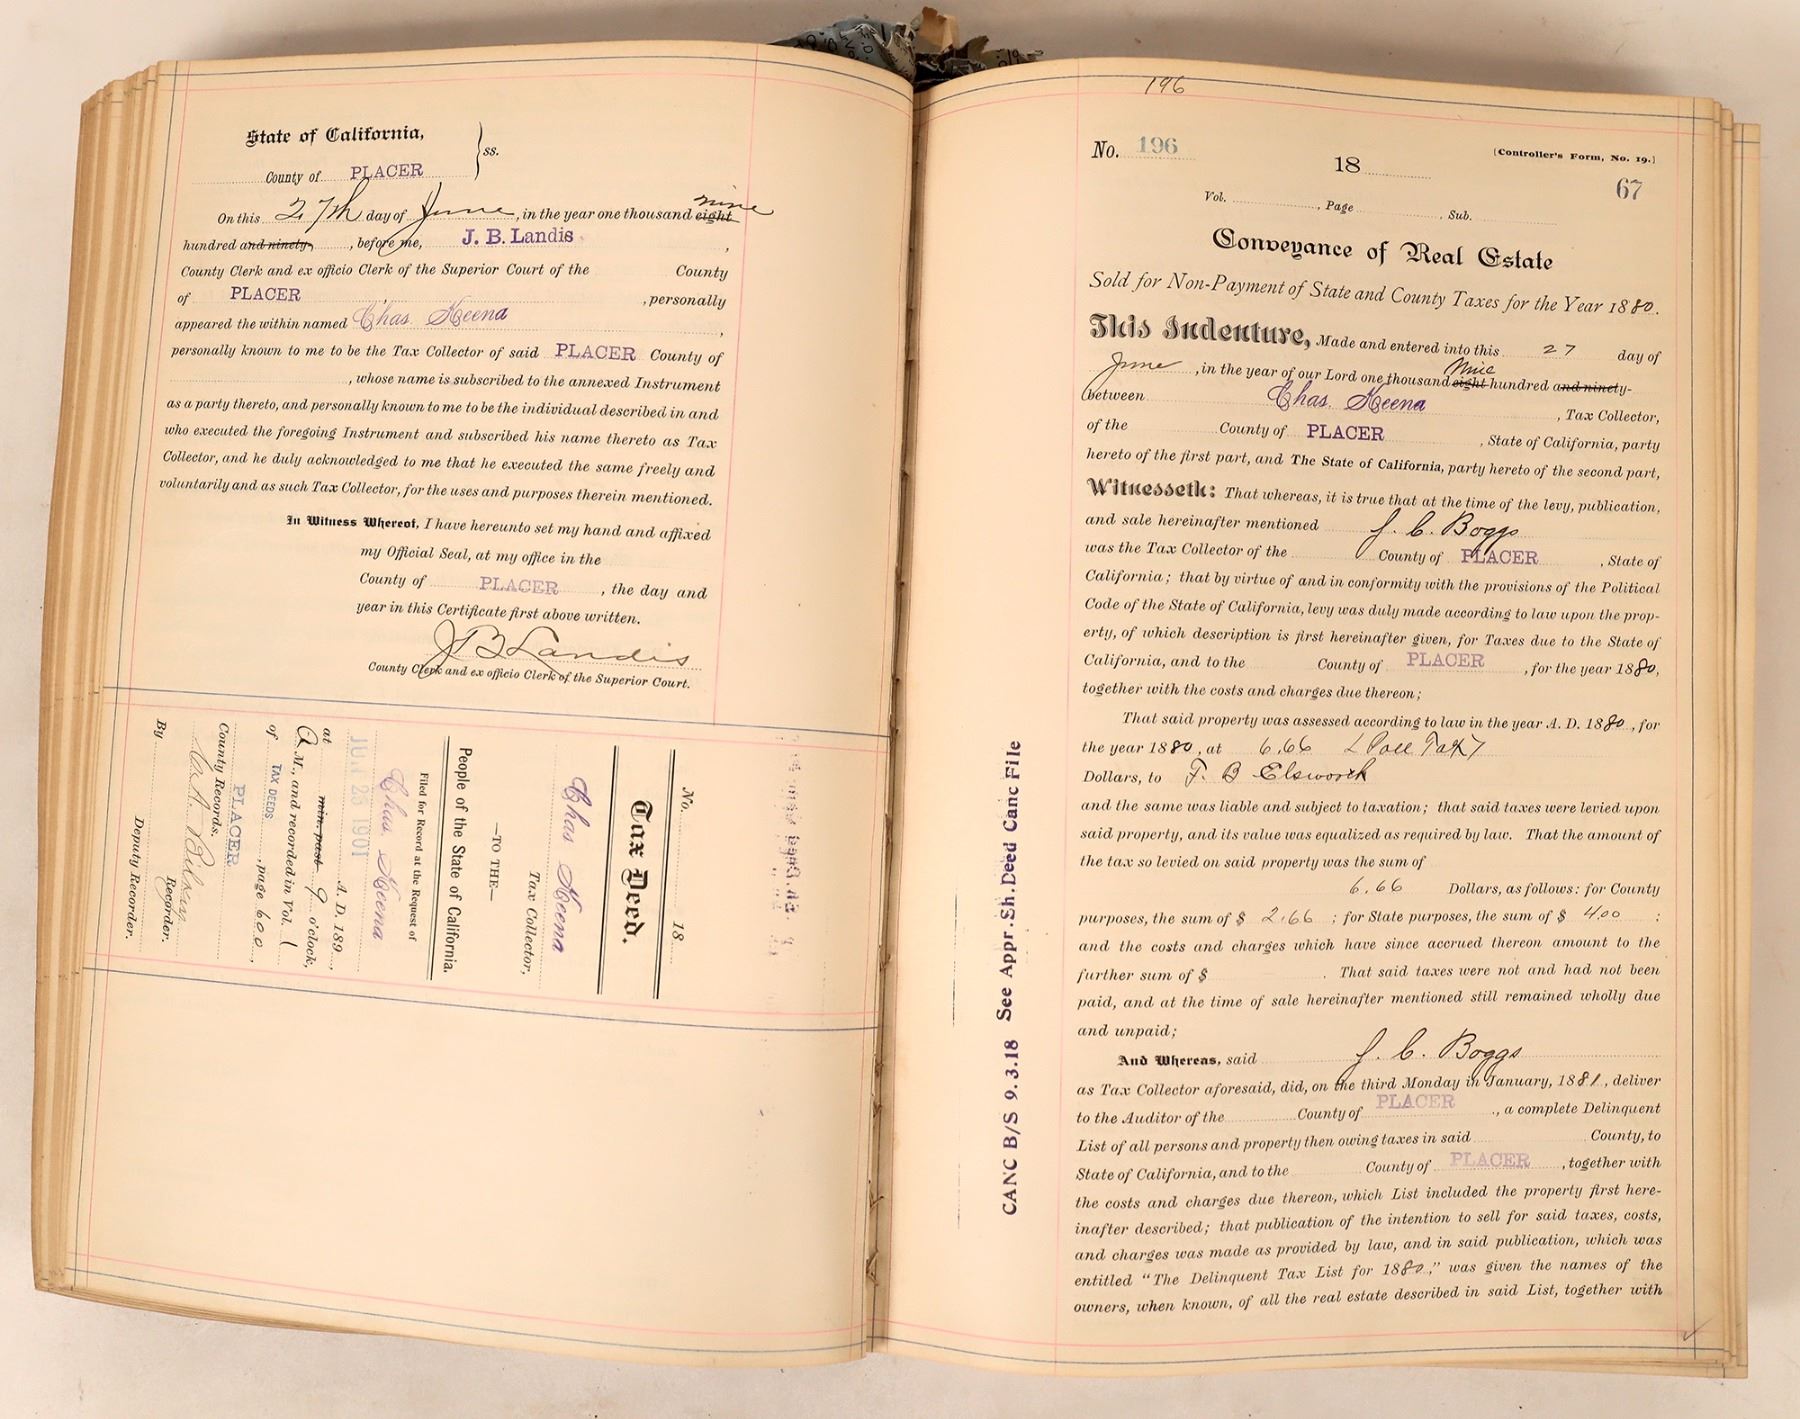 State of California,
County of PLACER } ss.
On this 27th day of June, in the year one thousand eight nine
hundred and ninety, before me, J. B. Landis,
County Clerk and ex officio Clerk of the Superior Court of the County
of PLACER, personally
appeared the within named Chas. Keena,
personally known to me to be the Tax Collector of said PLACER County of
, whose name is subscribed to the annexed Instrument
as a party thereto, and personally known to me to be the individual described in and
who executed the foregoing Instrument and subscribed his name thereto as Tax
Collector, and he duly acknowledged to me that he executed the same freely and
voluntarily and as such Tax Collector, for the uses and purposes therein mentioned.
In Witness Whereof, I have hereunto set my hand and affixed
my Official Seal, at my office in the
County of PLACER, the day and
year in this Certificate first above written.
J B Landis
County Clerk and ex officio Clerk of the Superior Court.
No. 18
Tax Deed.
Chas Keena
Tax Collector,
—TO THE—
People of the State of California.
Filed for Record at the Request of
Chas. Keena
JUN 28 1901 A. D. 189 ,
at min. past 9 o'clock,
A M., and recorded in Vol. 1
of TAX DEEDS, page 600,
PLACER
County Records.
Recorder.
By Deputy Recorder.
196
No. 196
18
[Controller's Form, No. 19.]
67
Vol. , Page , Sub.
Conveyance of Real Estate
Sold for Non-Payment of State and County Taxes for the Year 1880.
This Indenture, Made and entered into this 27 day of
June, in the year of our Lord one thousand eight Nine hundred and ninety-
between Chas. Keena, Tax Collector,
of the County of PLACER, State of California, party
hereto of the first part, and The State of California, party hereto of the second part,
Witnesseth: That whereas, it is true that at the time of the levy, publication,
and sale hereinafter mentioned J. C. Boggs
was the Tax Collector of the County of PLACER, State of
California; that by virtue of and in conformity with the provisions of the Political
Code of the State of California, levy was duly made according to law upon the prop-
erty, of which description is first hereinafter given, for Taxes due to the State of
California, and to the County of PLACER, for the year 1880,
together with the costs and charges due thereon;
That said property was assessed according to law in the year A. D. 1880, for
the year 1880, at 6.66 Poll Tax
Dollars, to F. B Elsworth
and the same was liable and subject to taxation; that said taxes were levied upon
said property, and its value was equalized as required by law. That the amount of
the tax so levied on said property was the sum of
6.66 Dollars, as follows: for County
purposes, the sum of $ 2.66; for State purposes, the sum of $ 4.00;
and the costs and charges which have since accrued thereon amount to the
further sum of $ . That said taxes were not and had not been
paid, and at the time of sale hereinafter mentioned still remained wholly due
and unpaid;
And Whereas, said J. C. Boggs
as Tax Collector aforesaid, did, on the third Monday in January, 1881, deliver
to the Auditor of the County of PLACER, a complete Delinquent
List of all persons and property then owing taxes in said County, to
State of California, and to the County of PLACER, together with
the costs and charges due thereon, which List included the property first here-
inafter described; that publication of the intention to sell for said taxes, costs,
and charges was made as provided by law, and in said publication, which was
entitled "The Delinquent Tax List for 1880," was given the names of the
owners, when known, of all the real estate described in said List, together with
CANC B/S 9.3.18 See Appr.Sh.Deed Canc File